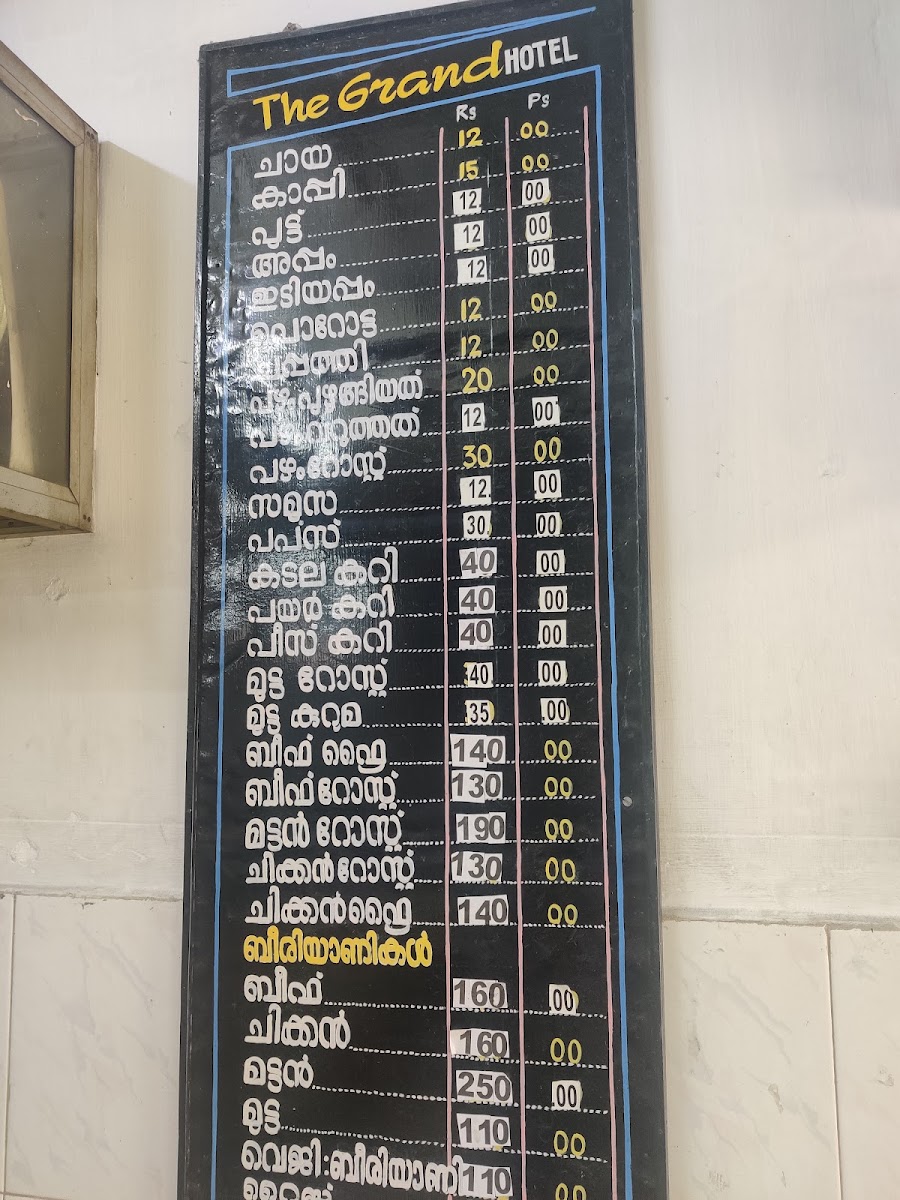 The Grand HOTEL
Rs Ps
ചായ 12 00
കാപ്പി 15 00
പുട്ട് 12 00
അപ്പം 12 00
ഇടിയപ്പം 12 00
പൊറോട്ട 12 00
ചപ്പത്തി 12 00
പഴംപുഴുങ്ങിയത് 20 00
പഴംവറുത്തത് 12 00
പഴംറോസ്റ്റ് 30 00
സമൂസ 12 00
പപ്സ് 30 00
കടല കറി 40 00
പയർ കറി 40 00
പീസ് കറി 40 00
മുട്ട റോസ്റ്റ് 40 00
മുട്ട കുറുമ 35 00
ബീഫ് ഫ്രൈ 140 00
ബീഫ് റോസ്റ്റ് 130 00
മട്ടൻ റോസ്റ്റ് 190 00
ചിക്കൻ റോസ്റ്റ് 130 00
ചിക്കൻ ഫ്രൈ 140 00
ബീരിയാണികൾ
ബീഫ് 160 00
ചിക്കൻ 160 00
മട്ടൻ 250 00
മുട്ട 110 00
വെജി:ബീരിയാണി 110 00